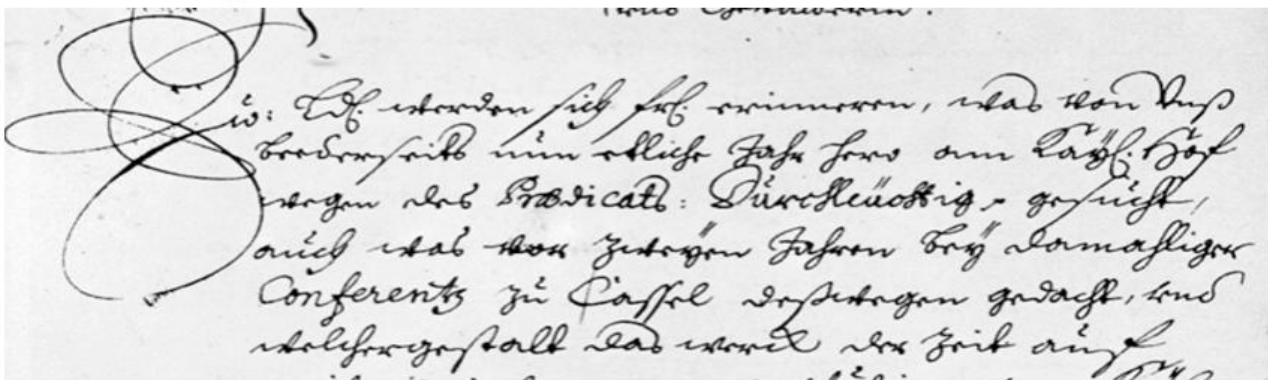 und Gevatterin.
Ew: Ldl. werden sich frl. erinneren, was von Unß
beederseits nun etliche Jahr hero am Kayl. Hof
wegen des Prædicats: Durchleüchtig, gesucht,
auch was vor zweyen Jahren bey damahliger
Conferentz zu Cassel deßwegen gedacht, und
welchergestalt das werck der Zeit auff